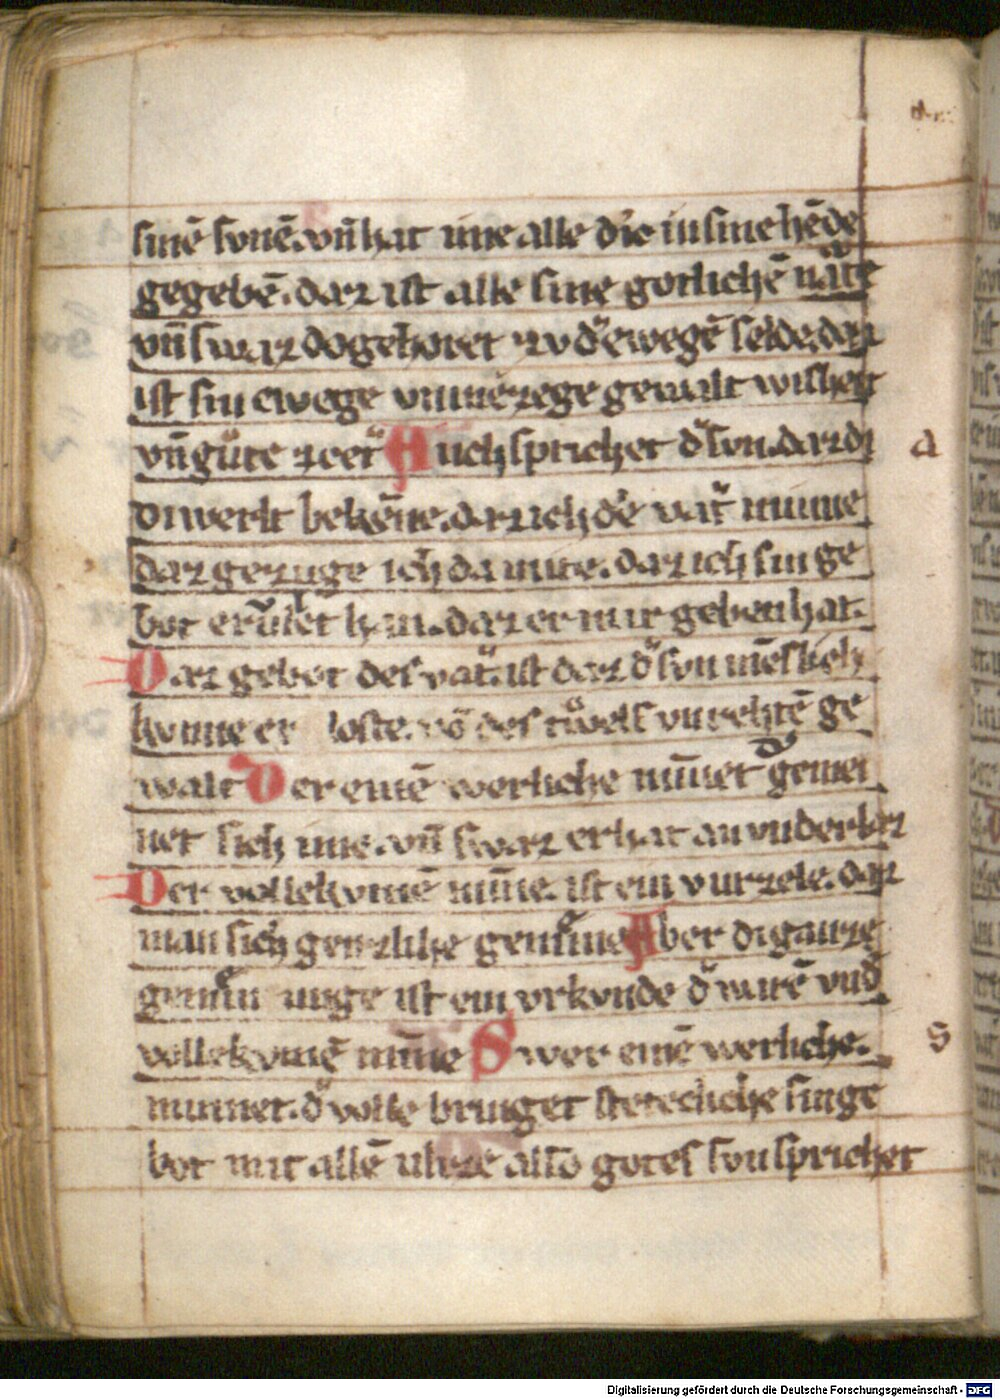 sinē sonē. vn̄ hat ime alle dīe in sine hēde
gegebē. daz ist alle sine gotlichē nāt͛e
vn̄ swaz do gehoret zv d͛ ewegē selde. daz
ist sin ewege vnmēzege gewalt wisheit
vn̄ gůte zcet͛ Auch sprichet d͛ son. daz di
di werlt bekēne. daz ich dē vat͛ minne
daz gezuge ich da mite. daz ich sin ge
bot ervͦllet han. daz er mir geben hat.
Daz gebot des vat͛. ist daz d͛ son mēslich
kvnne er loste. vō des tůuels vnrehtē ge
walt Der einē werliche minnet d͛ gemei
net sich ime. vn̄ swaz er hat an vnderlaz
Der vollekvmē minne. ist ein vurzele. daz
man sich genzliche gemeine Aber di ganze
gemein unge ist ein vrkvnde d͛ warē vnd͛
vollekvmē minne Swer einē werliche.
minnet. d͛ volle bringet stetecliche sin ge
bot mit allē vlize also gotes son sprichet
a
s
Digitalisierung gefördert durch die Deutsche Forschungsgemeinschaft - DFG